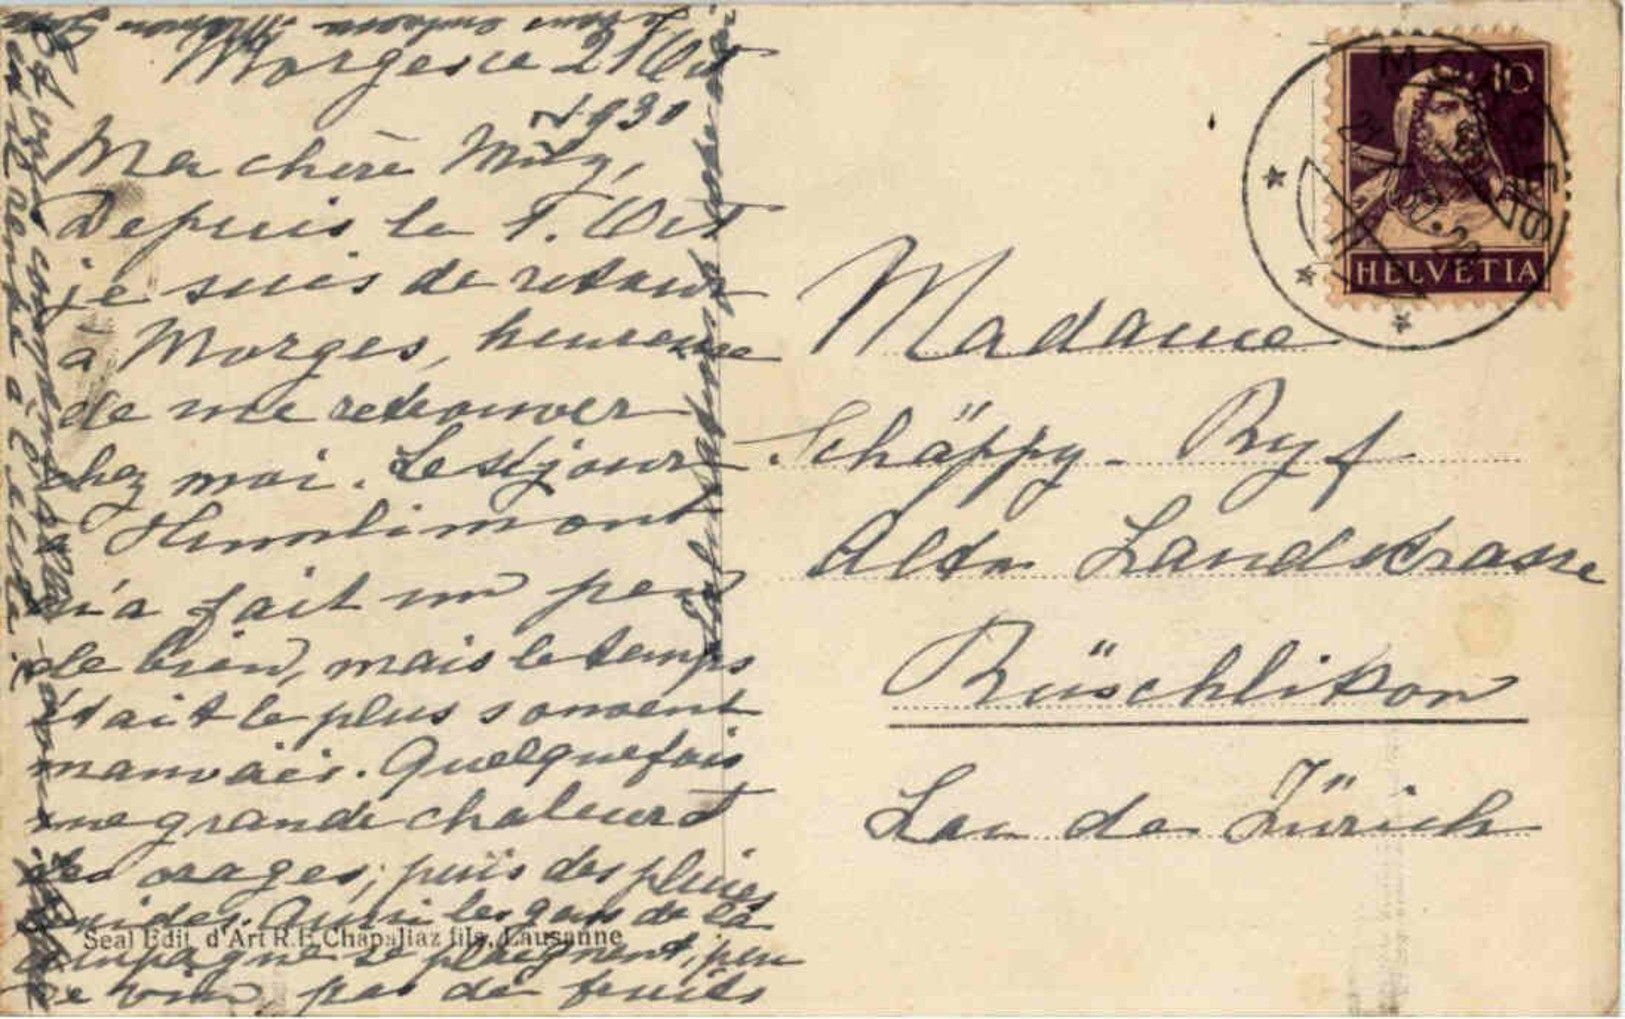 Morges ce 21 Oct
1930
Ma chère Mily,
Depuis le 1. Oct
je suis de retour
à Morges, heureuse
de me retrouver
chez moi. Le séjour
à Humlimont
m'a fait un peu
de bien, mais le temps
était le plus souvent
mauvais. Quelquefois
une grande chaleur et
des orages; puis des pluies
Aussi les gens de la
campagne se plaignent, peu
de vin, pas de fruits
Je vous embrasse
Madame
Schäppy-Ryf
Alte Landstrasse
Rüschlikon
Lac de Zürich
MORGES
10
HELVETIA
Seal Edit. d'Art R.E. Chapallaz fils, Lausanne